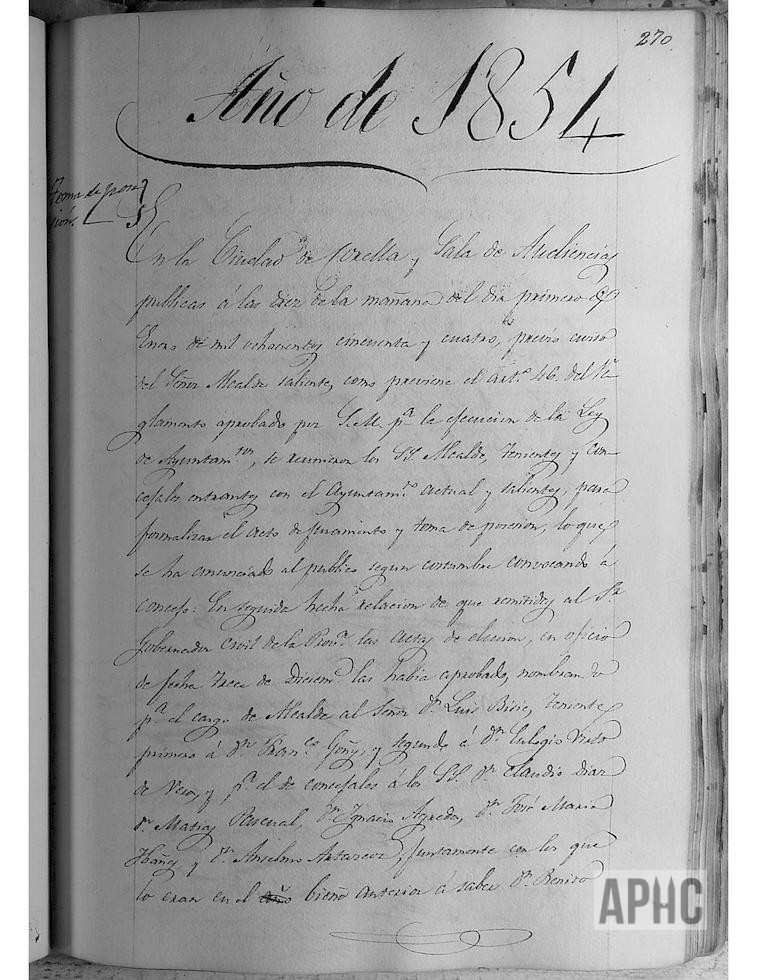 270
Año de 1854
Toma de pose
sion.
En la Ciudad de Corella y Sala de Audiencias
publicas á las diez de la mañana del dia primero de
Enero de mil ochocientos cincuenta y cuatro, previo aviso
del Señor Alcalde saliente, como previene el artº 46. del Re-
glamento aprobado por S.M. pª la ejecucion de la Ley
de Ayuntamtos, se reunieron los SS. Alcalde, Tenientes y con-
cejales entrantes con el Ayuntamto actual y salientes, para
formalizar el acto de juramento y toma de posesion, lo que
se ha anunciado al publico segun costumbre convocando á
concejo: En seguida hecha relacion de que remitidas al Sr
Gobernador Civil de la Provª las actas de eleccion, en oficio
de fecha trece de Diciemb las habia aprobado, nombrando
pª el cargo de Alcalde al Señor Dn Luis Bisie, Teniente
primero á Dn Franco Goñi, y segundo á Dn Eulogio Visto
de Vera, y pª el de concejales á los SS. Dn Claudio Diaz
Dn Matias Pascual, Dn Ignacio Agreda, Dn José Maria
Ibañes y Dn Anselmo, juntamente con los que
lo eran en el año bienio anterior á saber Dn Benito
APHC